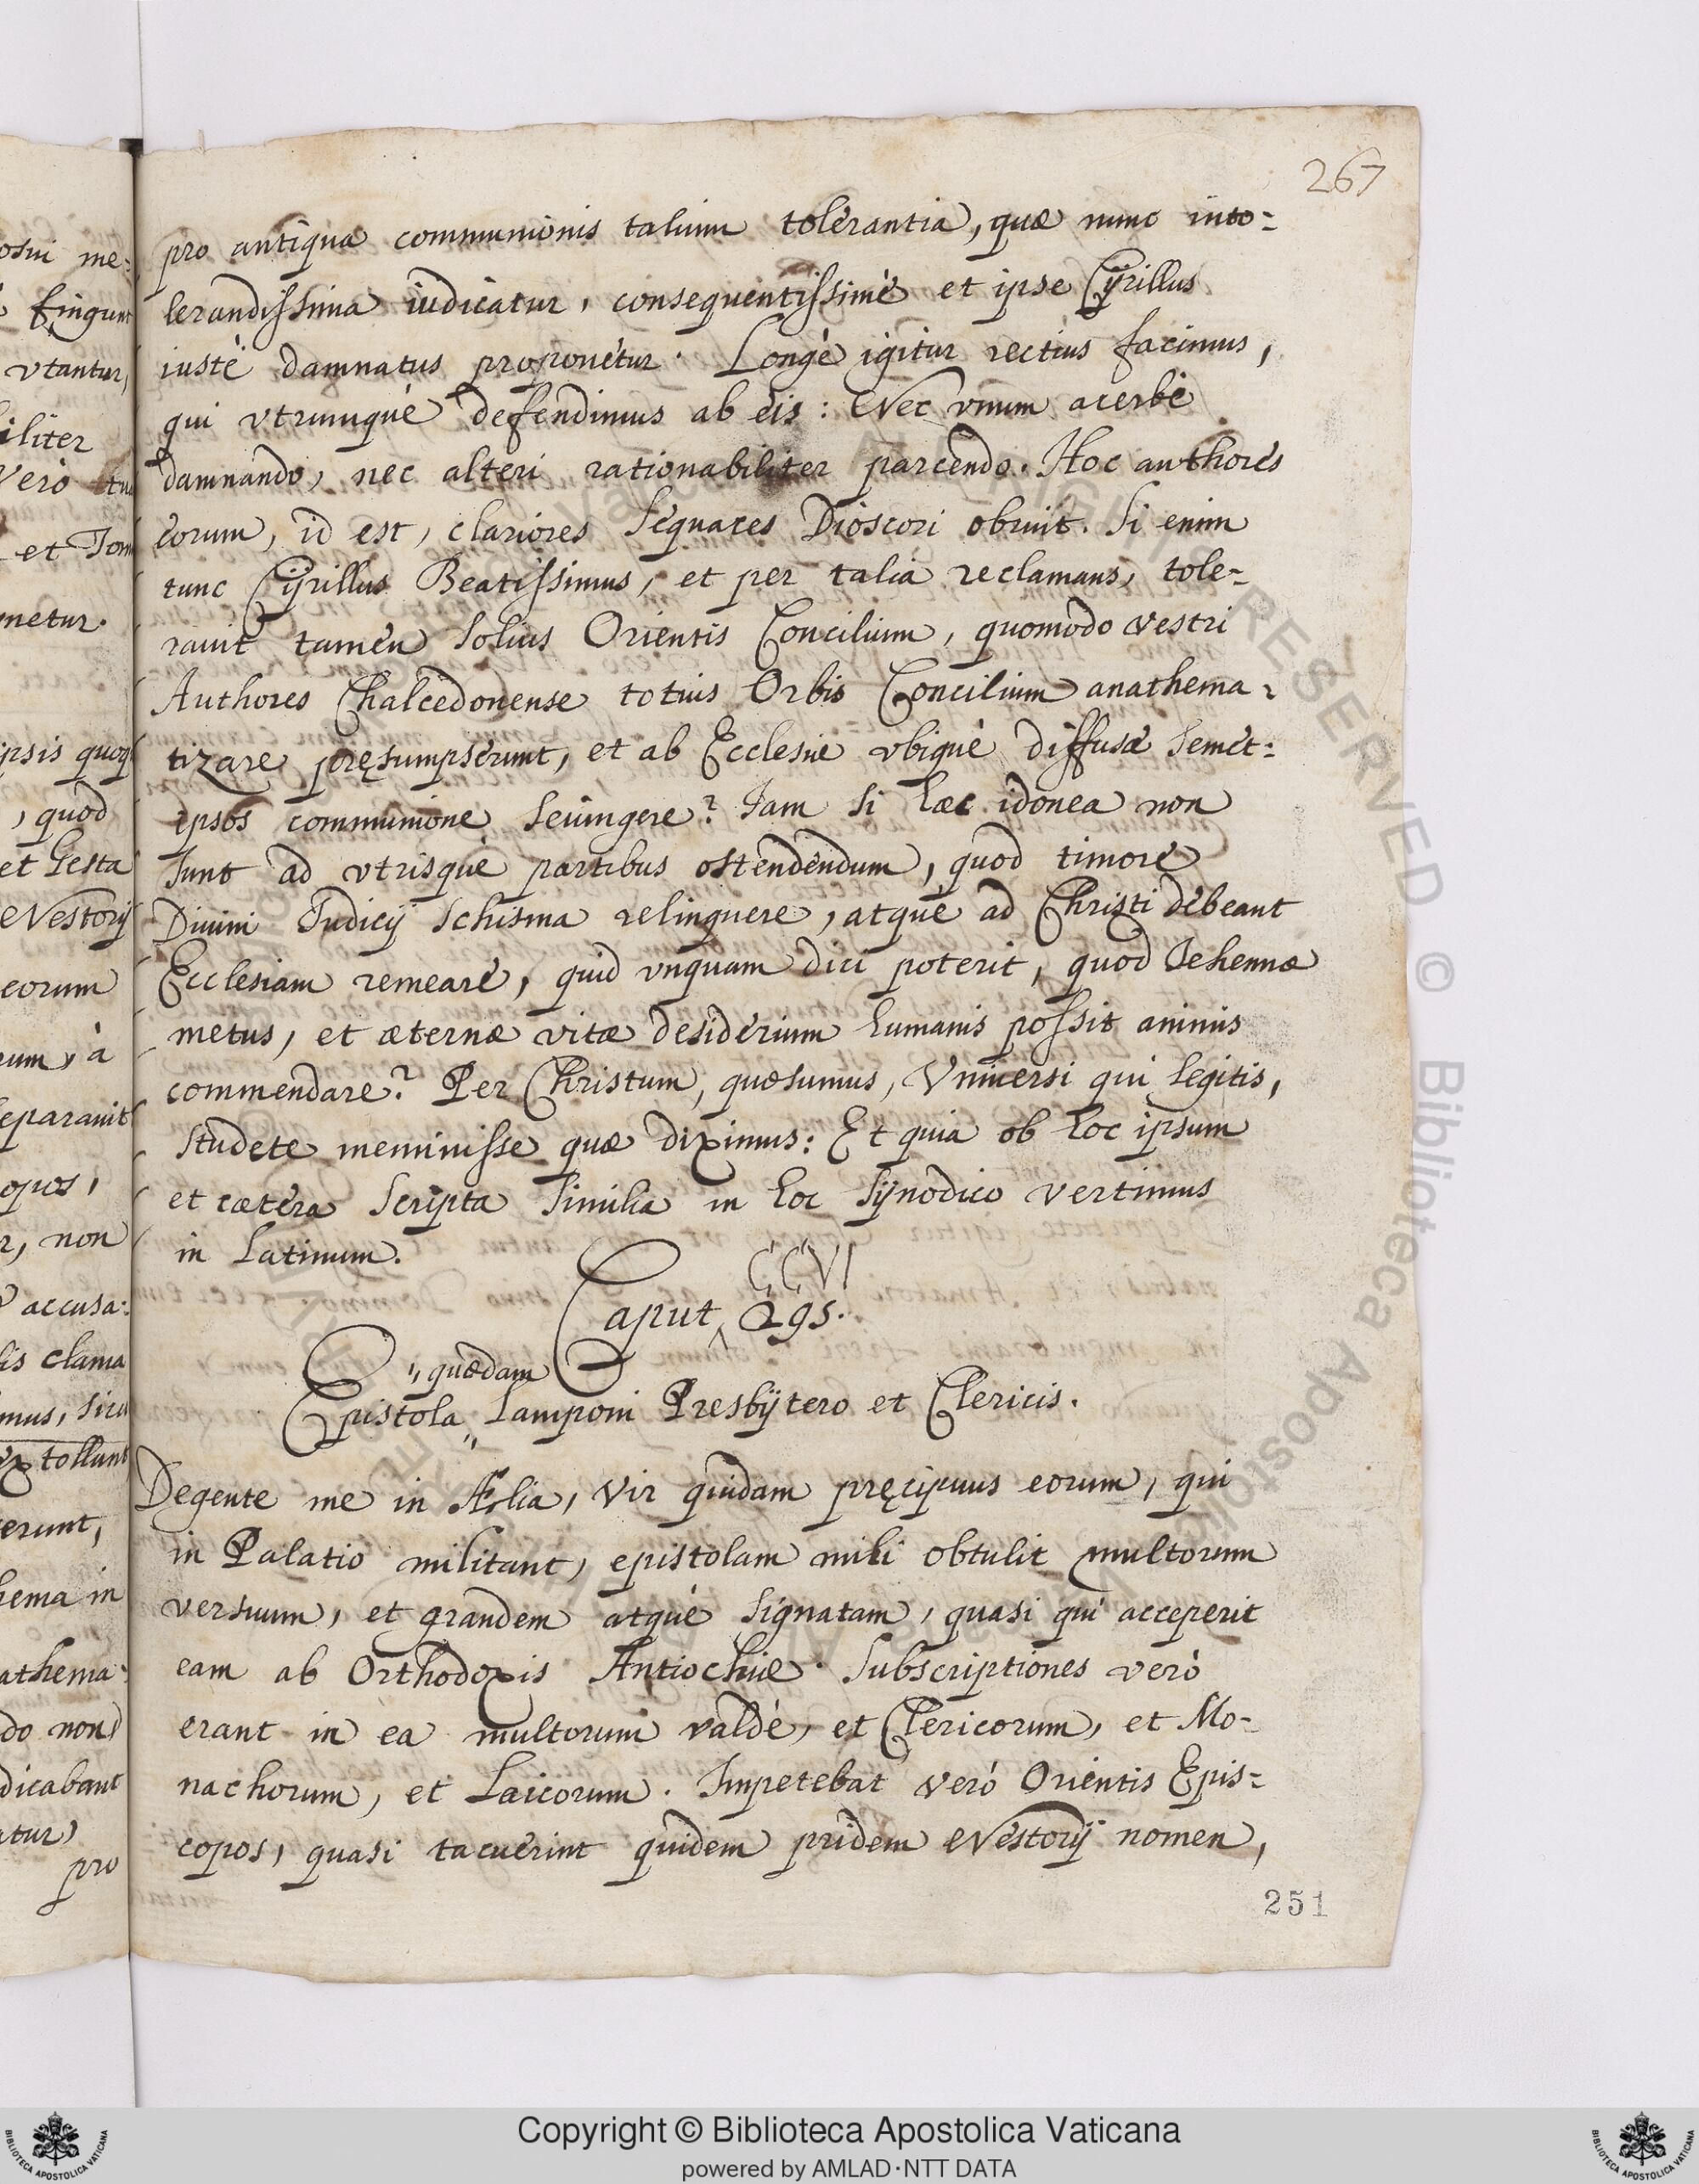 267
pro antiqua communionis talium tolerantia, quæ nunc into=
lerandissima iudicatur, consequentissimè et ipse Cyrillus
iustè damnatus proponetur. Longè igitur rectius facimus,
qui vtrumquè defendimus ab eis: Nec vnum acerbè
damnando, nec alteri rationabiliter parcendo. Hoc authores
eorum, id est, clariores sequaces Dioscori obruit. Si enim
tunc Cyrillus Beatissimus, et per talia reclamans, tole-
rauit tamen solius Orientis Concilium, quomodo vestri
Authores Chalcedonense totius Orbis Concilium anathema-
tizare pręsumpserunt, et ab Ecclesiæ vbiquè diffusæ semet=
ipsos communione seiungere? Iam si hæc idonea non
sunt ad vtrisquè partibus ostendendum, quod timore
Diuini Iudicij schisma relinquere, atquè ad Christi debeant
Ecclesiam remeare, quid vnquam dici poterit, quod Gehennæ
metus, et æternæ vitæ desiderium humanis possit animis
commendare? Per Christum, quæsumus, Vniuersi qui legitis,
studete meminisse quæ diximus: Et quia ob hoc ipsum
et cætera scripta similia in hoc synodico vertimus
in Latinum.
CCVI
Caput 295.
quædam
Epistola Lamponi Presbytero et Clericis.
Degente me in Ælia, Vir quidam pręcipuus eorum, qui
in Palatio militant, epistolam mihi obtulit multorum
versuum, et grandem atquè signatam, quasi qui acceperit
eam ab Orthodoxis Antiochiæ. Subscriptiones verò
erant in ea multorum valdè, et Clericorum, et Mo-
nachorum, et Laicorum. Impetebat verò Orientis Epis=
copos, quasi tacuerint quidem pridem Nestorij nomen,
251
osui me=
fingunt
vtantur,
iliter
Verò
et Tom
netur.
ipsis quoq
, quod
et Gesta
Nestorij
eorum
rum, à
separauit
opos,
r, non
accusa=
lis clama
mus, sicu
extollunt
erunt,
hema in
athema=
do non
dicabant
atur,
pro
Copyright © Biblioteca Apostolica Vaticana
powered by AMLAD·NTT DATA